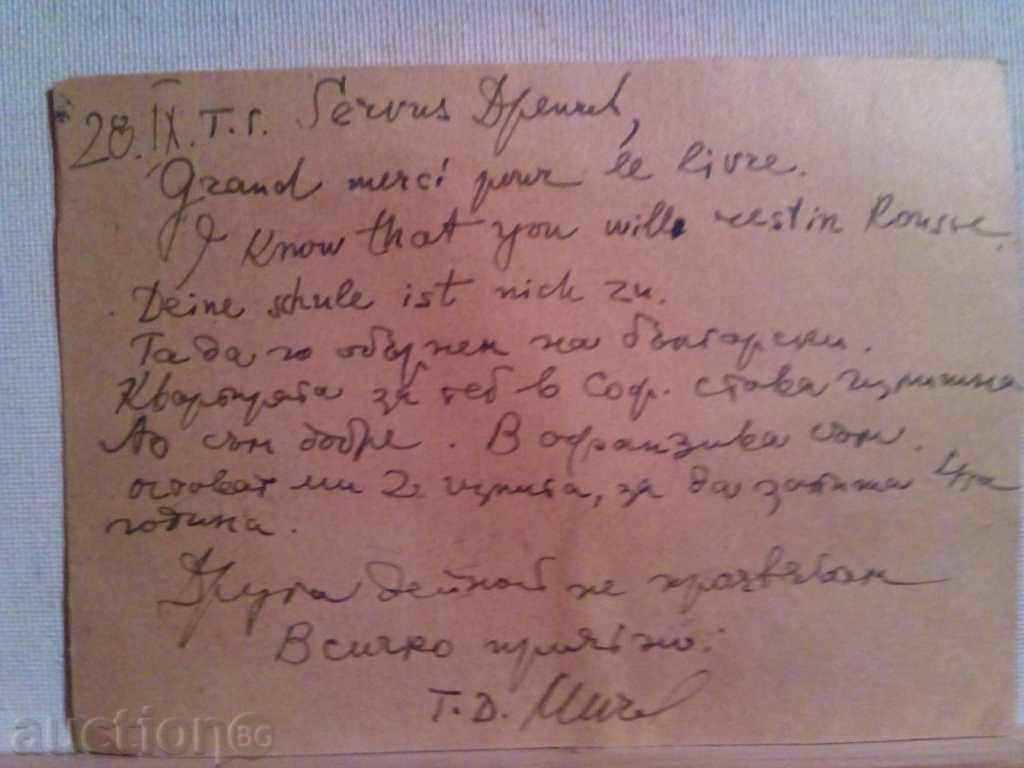 28.IX.т.г. Servus Дренчев,
Grand merci pour le livre.
I know that you will rest in Rousse.
Deine schule ist nick zu.
Та да го обърнем на български.
Квартирата за теб в Соф. става излишна
Аз съм добре. В офанзива съм.
остават ми 2 изпита, за да запиша 4та
година.
Друга дейност не проявявам
Всичко приятно:
Т.D.
auctionBG